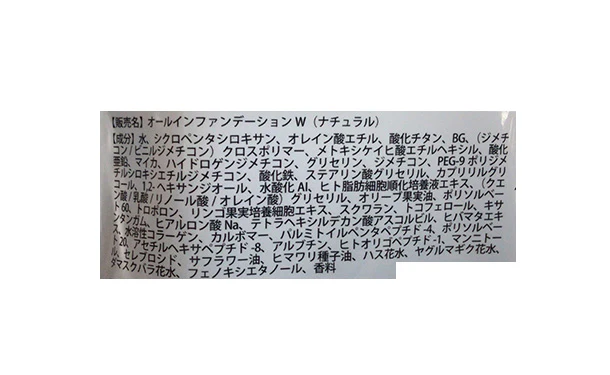 【販売名】オールインファンデーション W（ナチュラル）
【成分】水、シクロペンタシロキサン、オレイン酸エチル、酸化チタン、BG、（ジメチ
コン / ビニルジメチコン）クロスポリマー、メトキシケイヒ酸エチルヘキシル、酸化
亜鉛、マイカ、ハイドロゲンジメチコン、グリセリン、ジメチコン、PEG-9 ポリジメ
チルシロキシエチルジメチコン、酸化鉄、ステアリン酸グリセリル、カプリリルグリ
コール、1,2- ヘキサンジオール、水酸化 Al、ヒト脂肪細胞順化培養液エキス、（クエ
ン酸 / 乳酸 / リノール酸 / オレイン酸）グリセリル、オリーブ果実油、ポリソルベー
ト 60、トロポロン、リンゴ果実培養細胞エキス、スクワラン、トコフェロール、キサ
ンタンガム、ヒアルロン酸 Na、テトラヘキシルデカン酸アスコルビル、ヒバマタエキ
ス、水溶性コラーゲン、カルボマー、パルミトイルペンタペプチド -4、ポリソルベー
ト 20、アセチルヘキサペプチド -8、アルブチン、ヒトオリゴペプチド -1、マンニトー
ル、セレブロシド、サフラワー油、ヒマワリ種子油、ハス花水、ヤグルマギク花水、
ダマスクバラ花水、フェノキシエタノール、香料